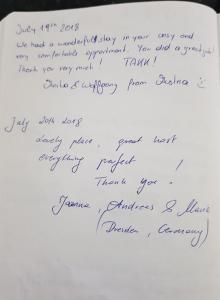 July 19th 2018
We had a wonderfull stay in your cosy and
very comfortable appartment. You did a great job!
Thank you very much! TAKK!
& Wolfgang from Austria
July 20th 2018
Lovely place, great host
everything perfect!
Thank you.
Joanna, Andreas &
(Dresden, Germany)